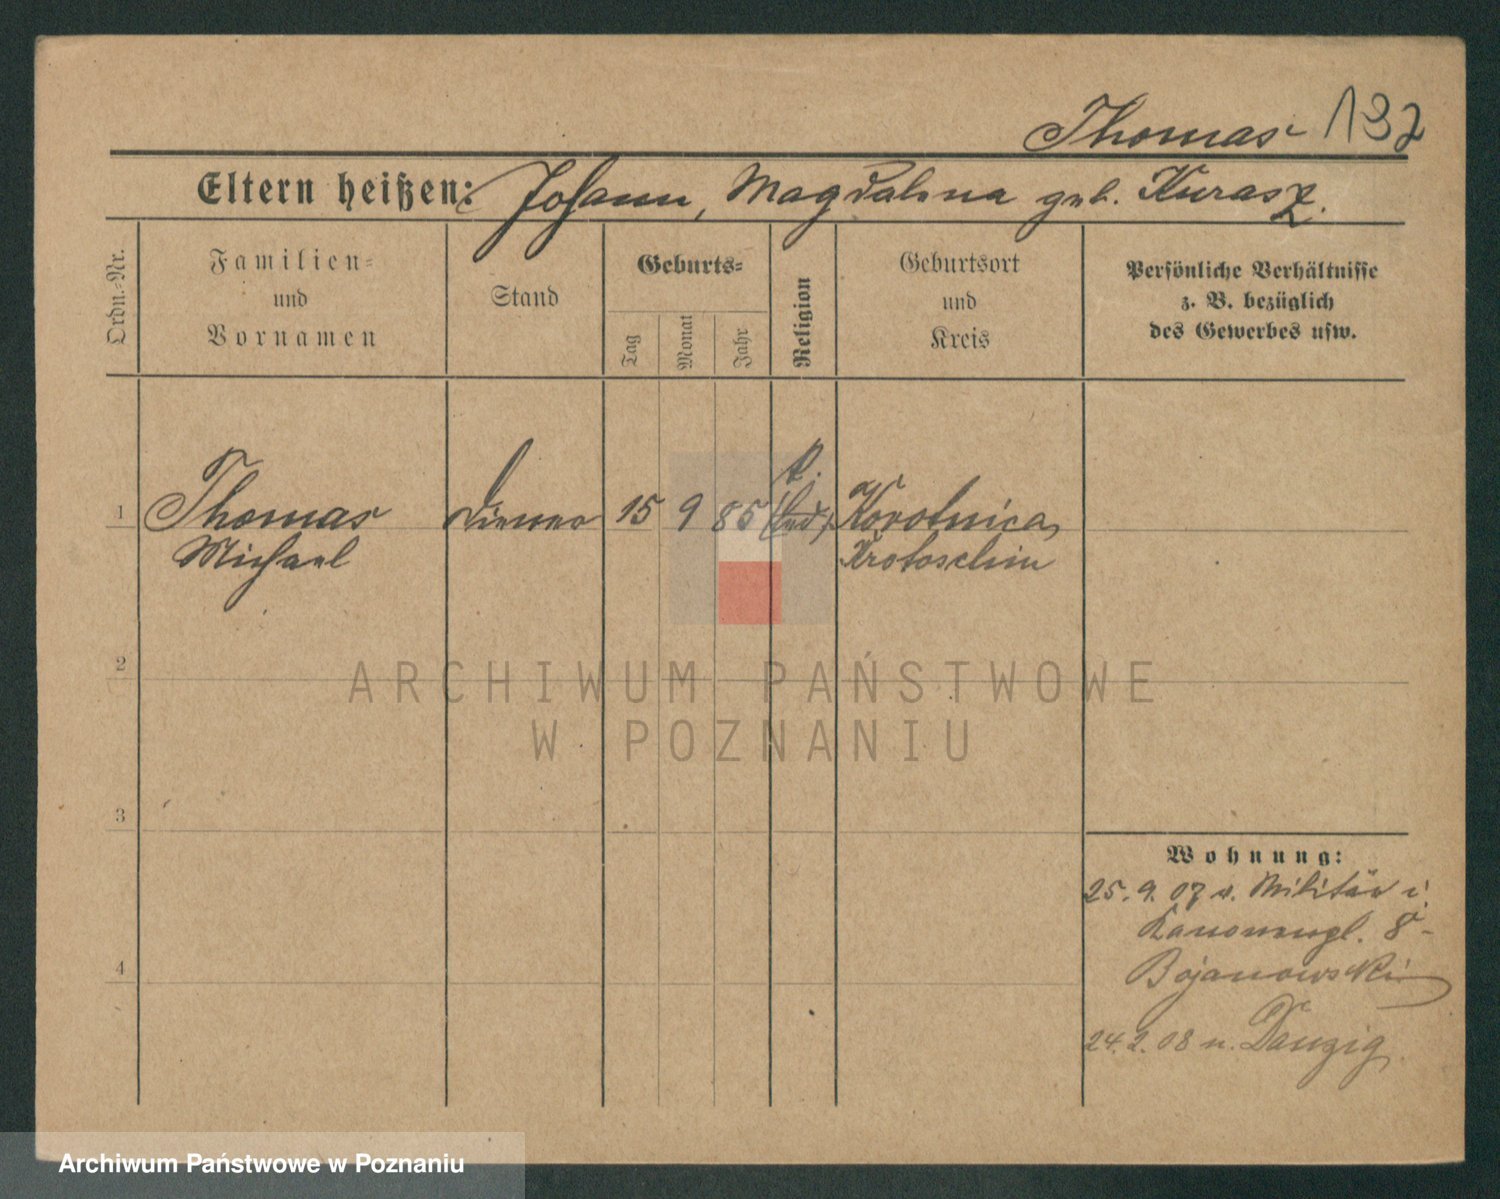 Thomas 132
Eltern heißen: Johann, Magdalena geb. Kurasz.
Ordn.-Nr.
Familien-
und
Vornamen
Stand
Geburts-
Tag
Monat
Jahr
Religion
Geburtsort
und
Kreis
Persönliche Verhältnisse
z. B. bezüglich
des Gewerbes usw.
k.
1 Thomas Diener 15 9 85 (led) Korotnica,
Michael Krotoschin
2
ARCHIWUM PAŃSTWOWE
W POZNANIU
3
Wohnung:
25. 9. 07 v. Militär i.
Kanonenpl. 8
Bojanowski
4
24. 2. 08 n. Danzig
Archiwum Państwowe w Poznaniu